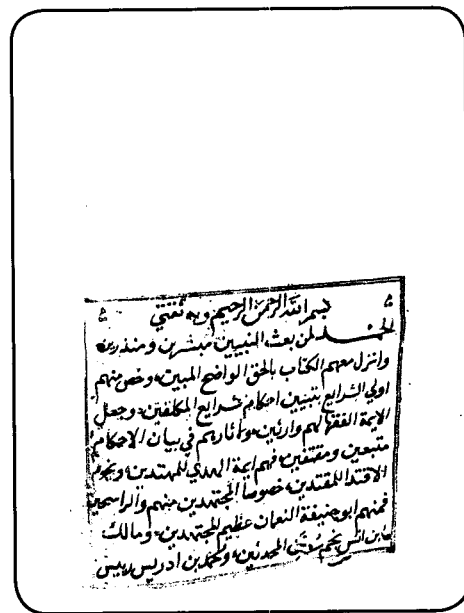 بسم الله الرحمن الرحيم وبه ثقتي
الحمد لمن بعث النبيين مبشرين ومنذرين
وانزل معهم الكتاب بالحق الواضح المبين وخص منهم
اولي الشرايع بتبيين احكام شرايع المكلفين وجعل
الايمة الفقها لهم وارثين ولآثارهم في بيان الاحكام
متبعين ومقتفين فهم ايمة الهدي للمهتدين ونجوم
الاقتدا للمقتدين خصوصا المجتهدين منهم والراسخين
فمنهم ابو حنيفة النعمان عظيم المجتهدين ومالك
ابن انس نجم المحدثين ومحمد بن ادريس رييس